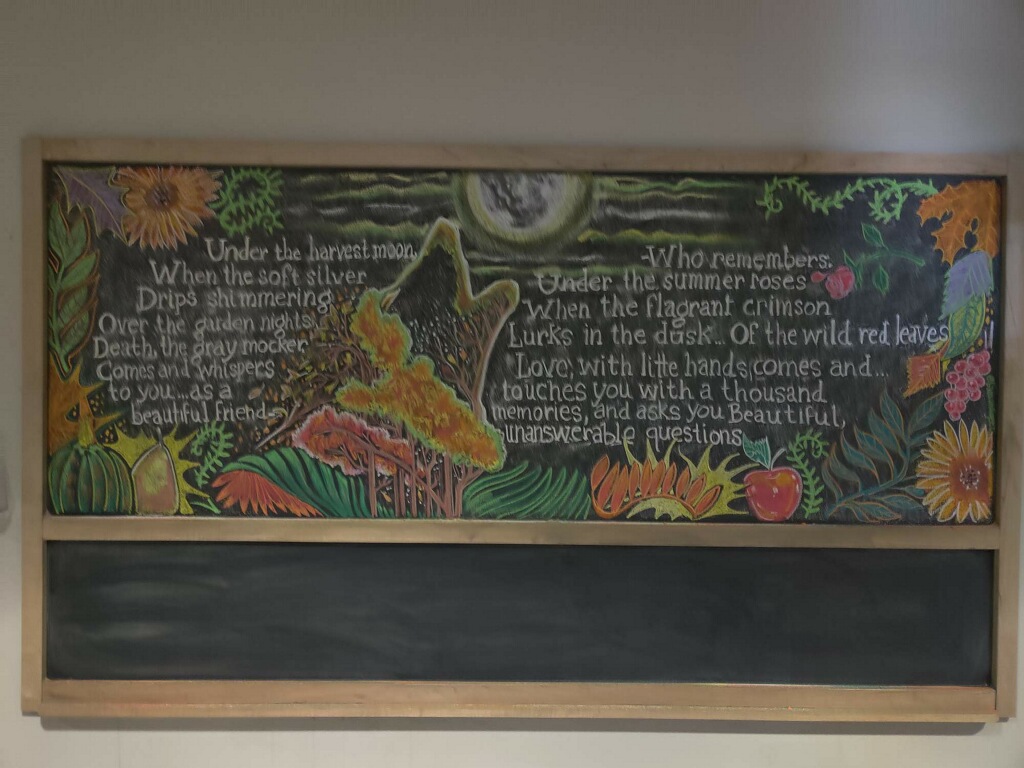 Under the harvest moon,
When the soft silver
Drips shimmering
Over the garden nights,
Death, the gray mocker
Comes and whispers
to you...as a
beautiful friend-
-Who remembers.
Under the summer roses
When the flagrant crimson
Lurks in the dusk... Of the wild red leaves
Love, with litte hands, comes and...
touches you with a thousand
memories, and asks you Beautiful,
unanswerable questions